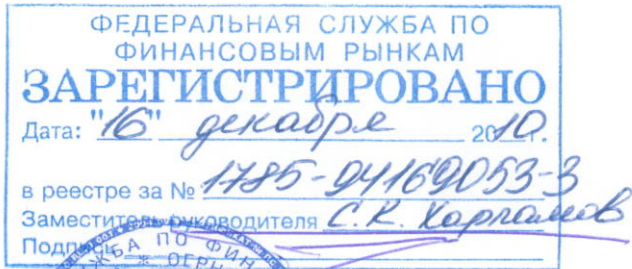 ФЕДЕРАЛЬНАЯ СЛУЖБА ПО
ФИНАНСОВЫМ РЫНКАМ
ЗАРЕГИСТРИРОВАНО
Дата: "16" декабря 2010г.
в реестре за № 1785-94169053-3
Заместитель руководителя С.К. Харламов
Подпись
ЖБА ПО ФИН
* ОГРН